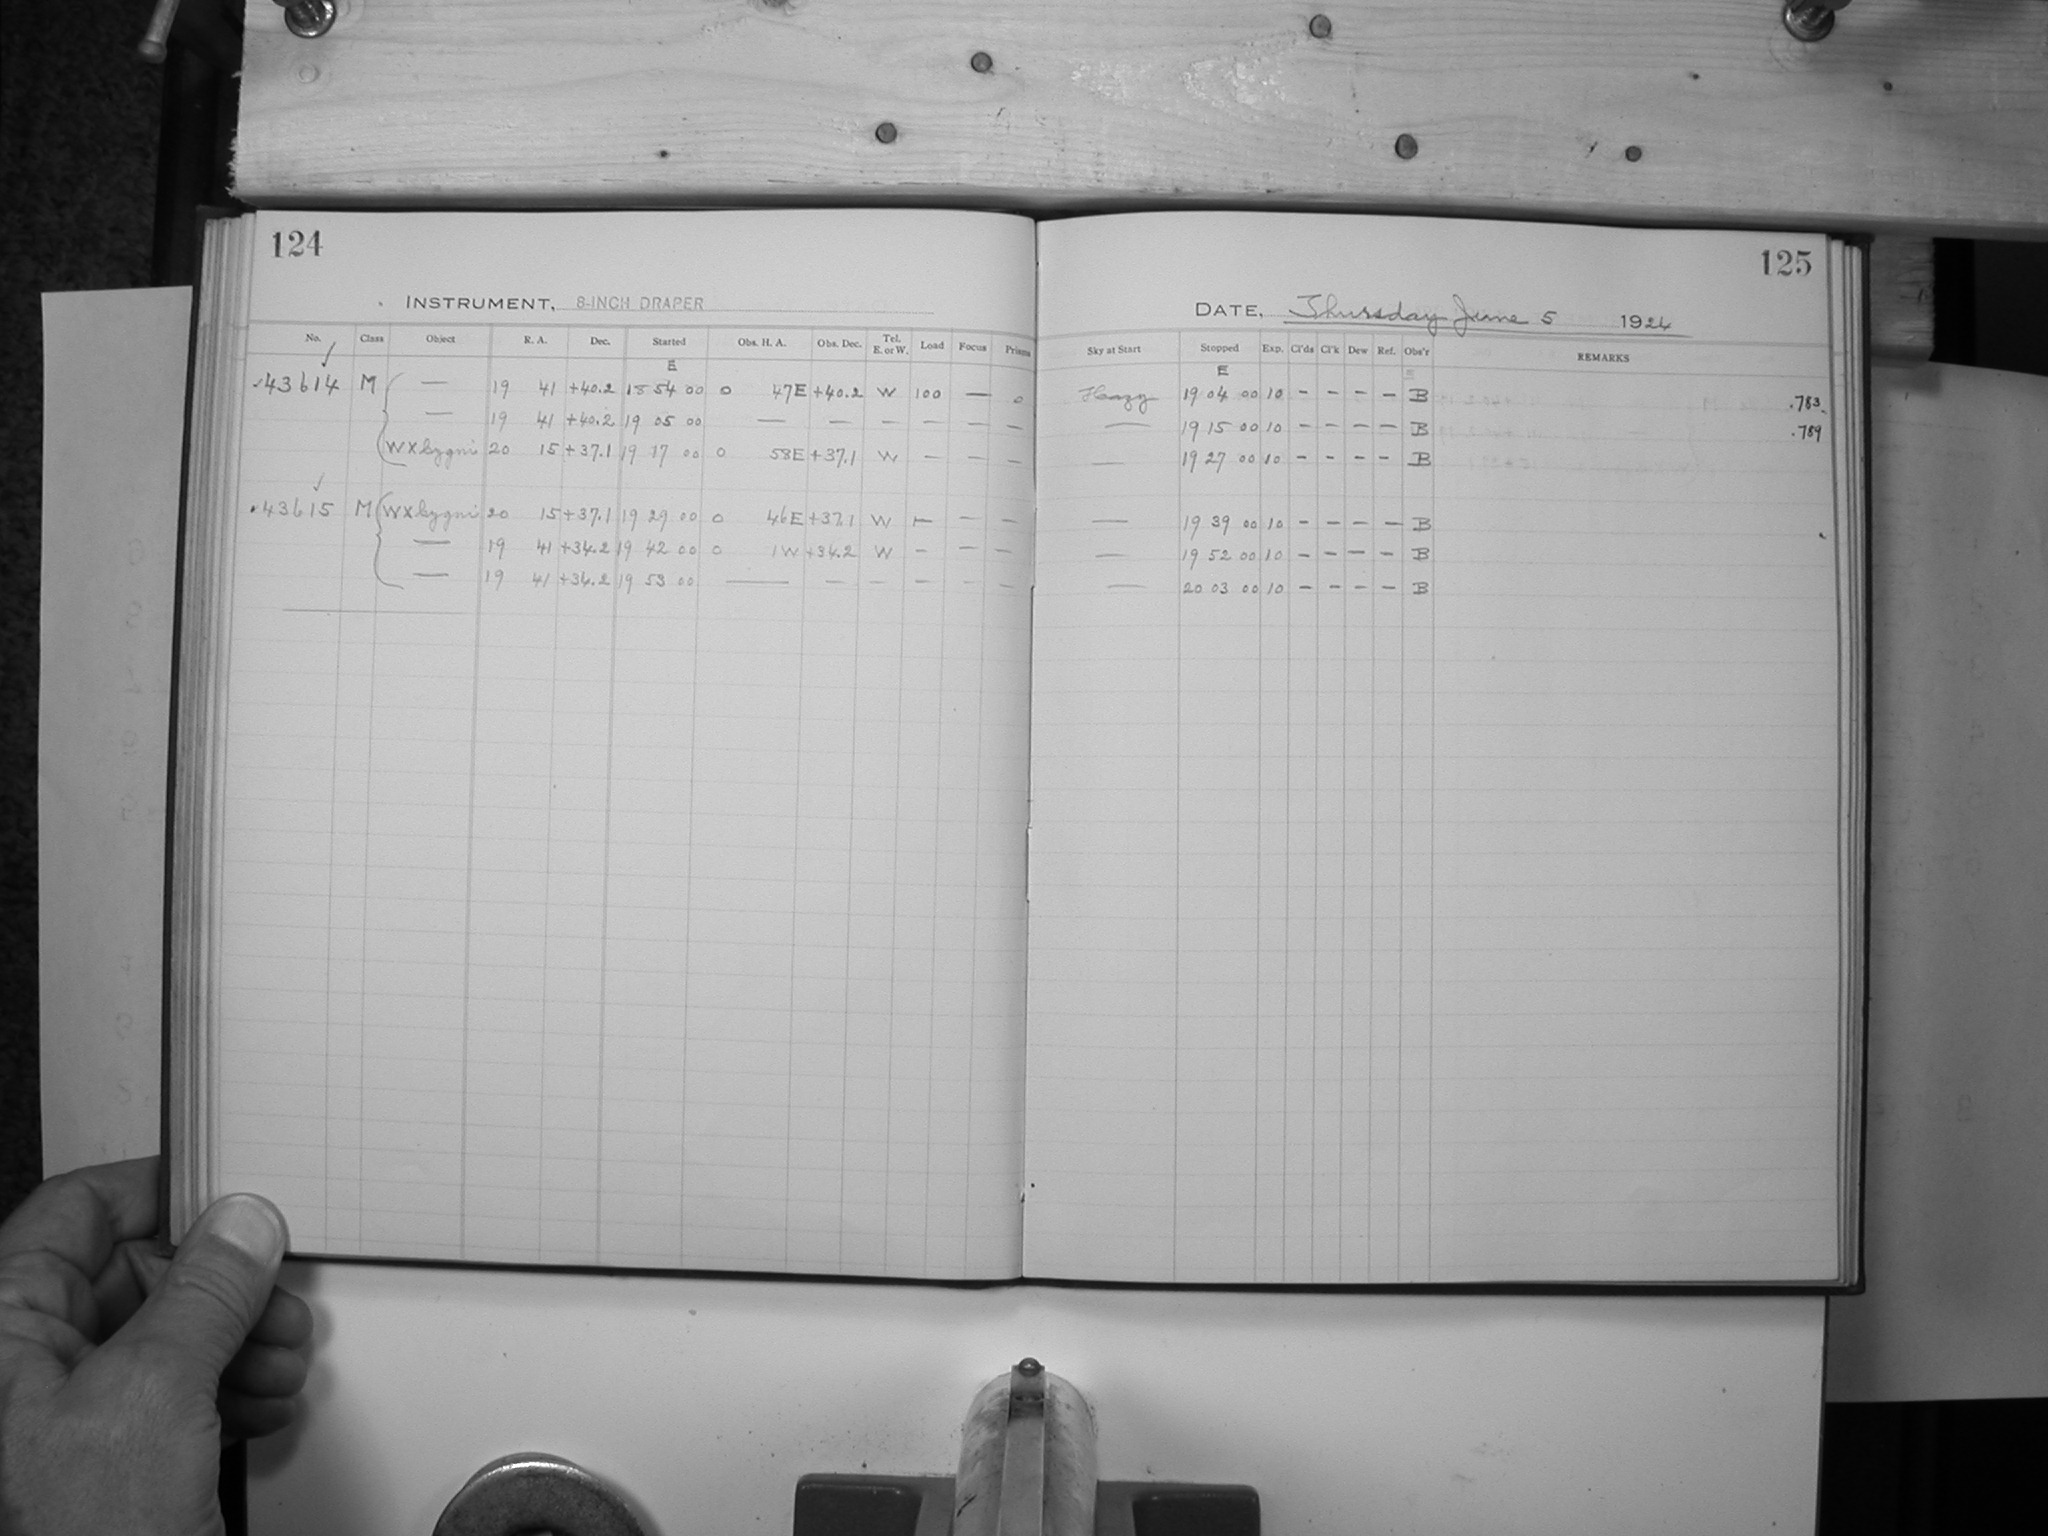 124
INSTRUMENT, 8-INCH DRAPER
No. Class Object R. A. Dec. Started Obs. H. A. Obs. Dec. Tel. E. or W. Load Focus Prisms
E
43614 M — 19 41 +40.2 18 54 00 0 47E +40.2 W 100 — 0
— 19 41 +40.2 19 05 00 — — — — — —
WX Cygni 20 15 +37.1 19 17 00 0 58E +37.1 W — — —
43615 M WX Cygni 20 15 +37.1 19 29 00 0 46E +37.1 W — — —
— 19 41 +34.2 19 42 00 0 1W +34.2 W — — —
— 19 41 +34.2 19 53 00 — — — — — —
125
DATE, Thursday June 5 1924
Sky at Start Stopped Exp. Cl'ds Cl'k Dew Ref. Obs'r REMARKS
E
Hazy 19 04 00 10 — — — — B .783
— 19 15 00 10 — — — — B .789
— 19 27 00 10 — — — — B
— 19 39 00 10 — — — — B
— 19 52 00 10 — — — — B
— 20 03 00 10 — — — — B